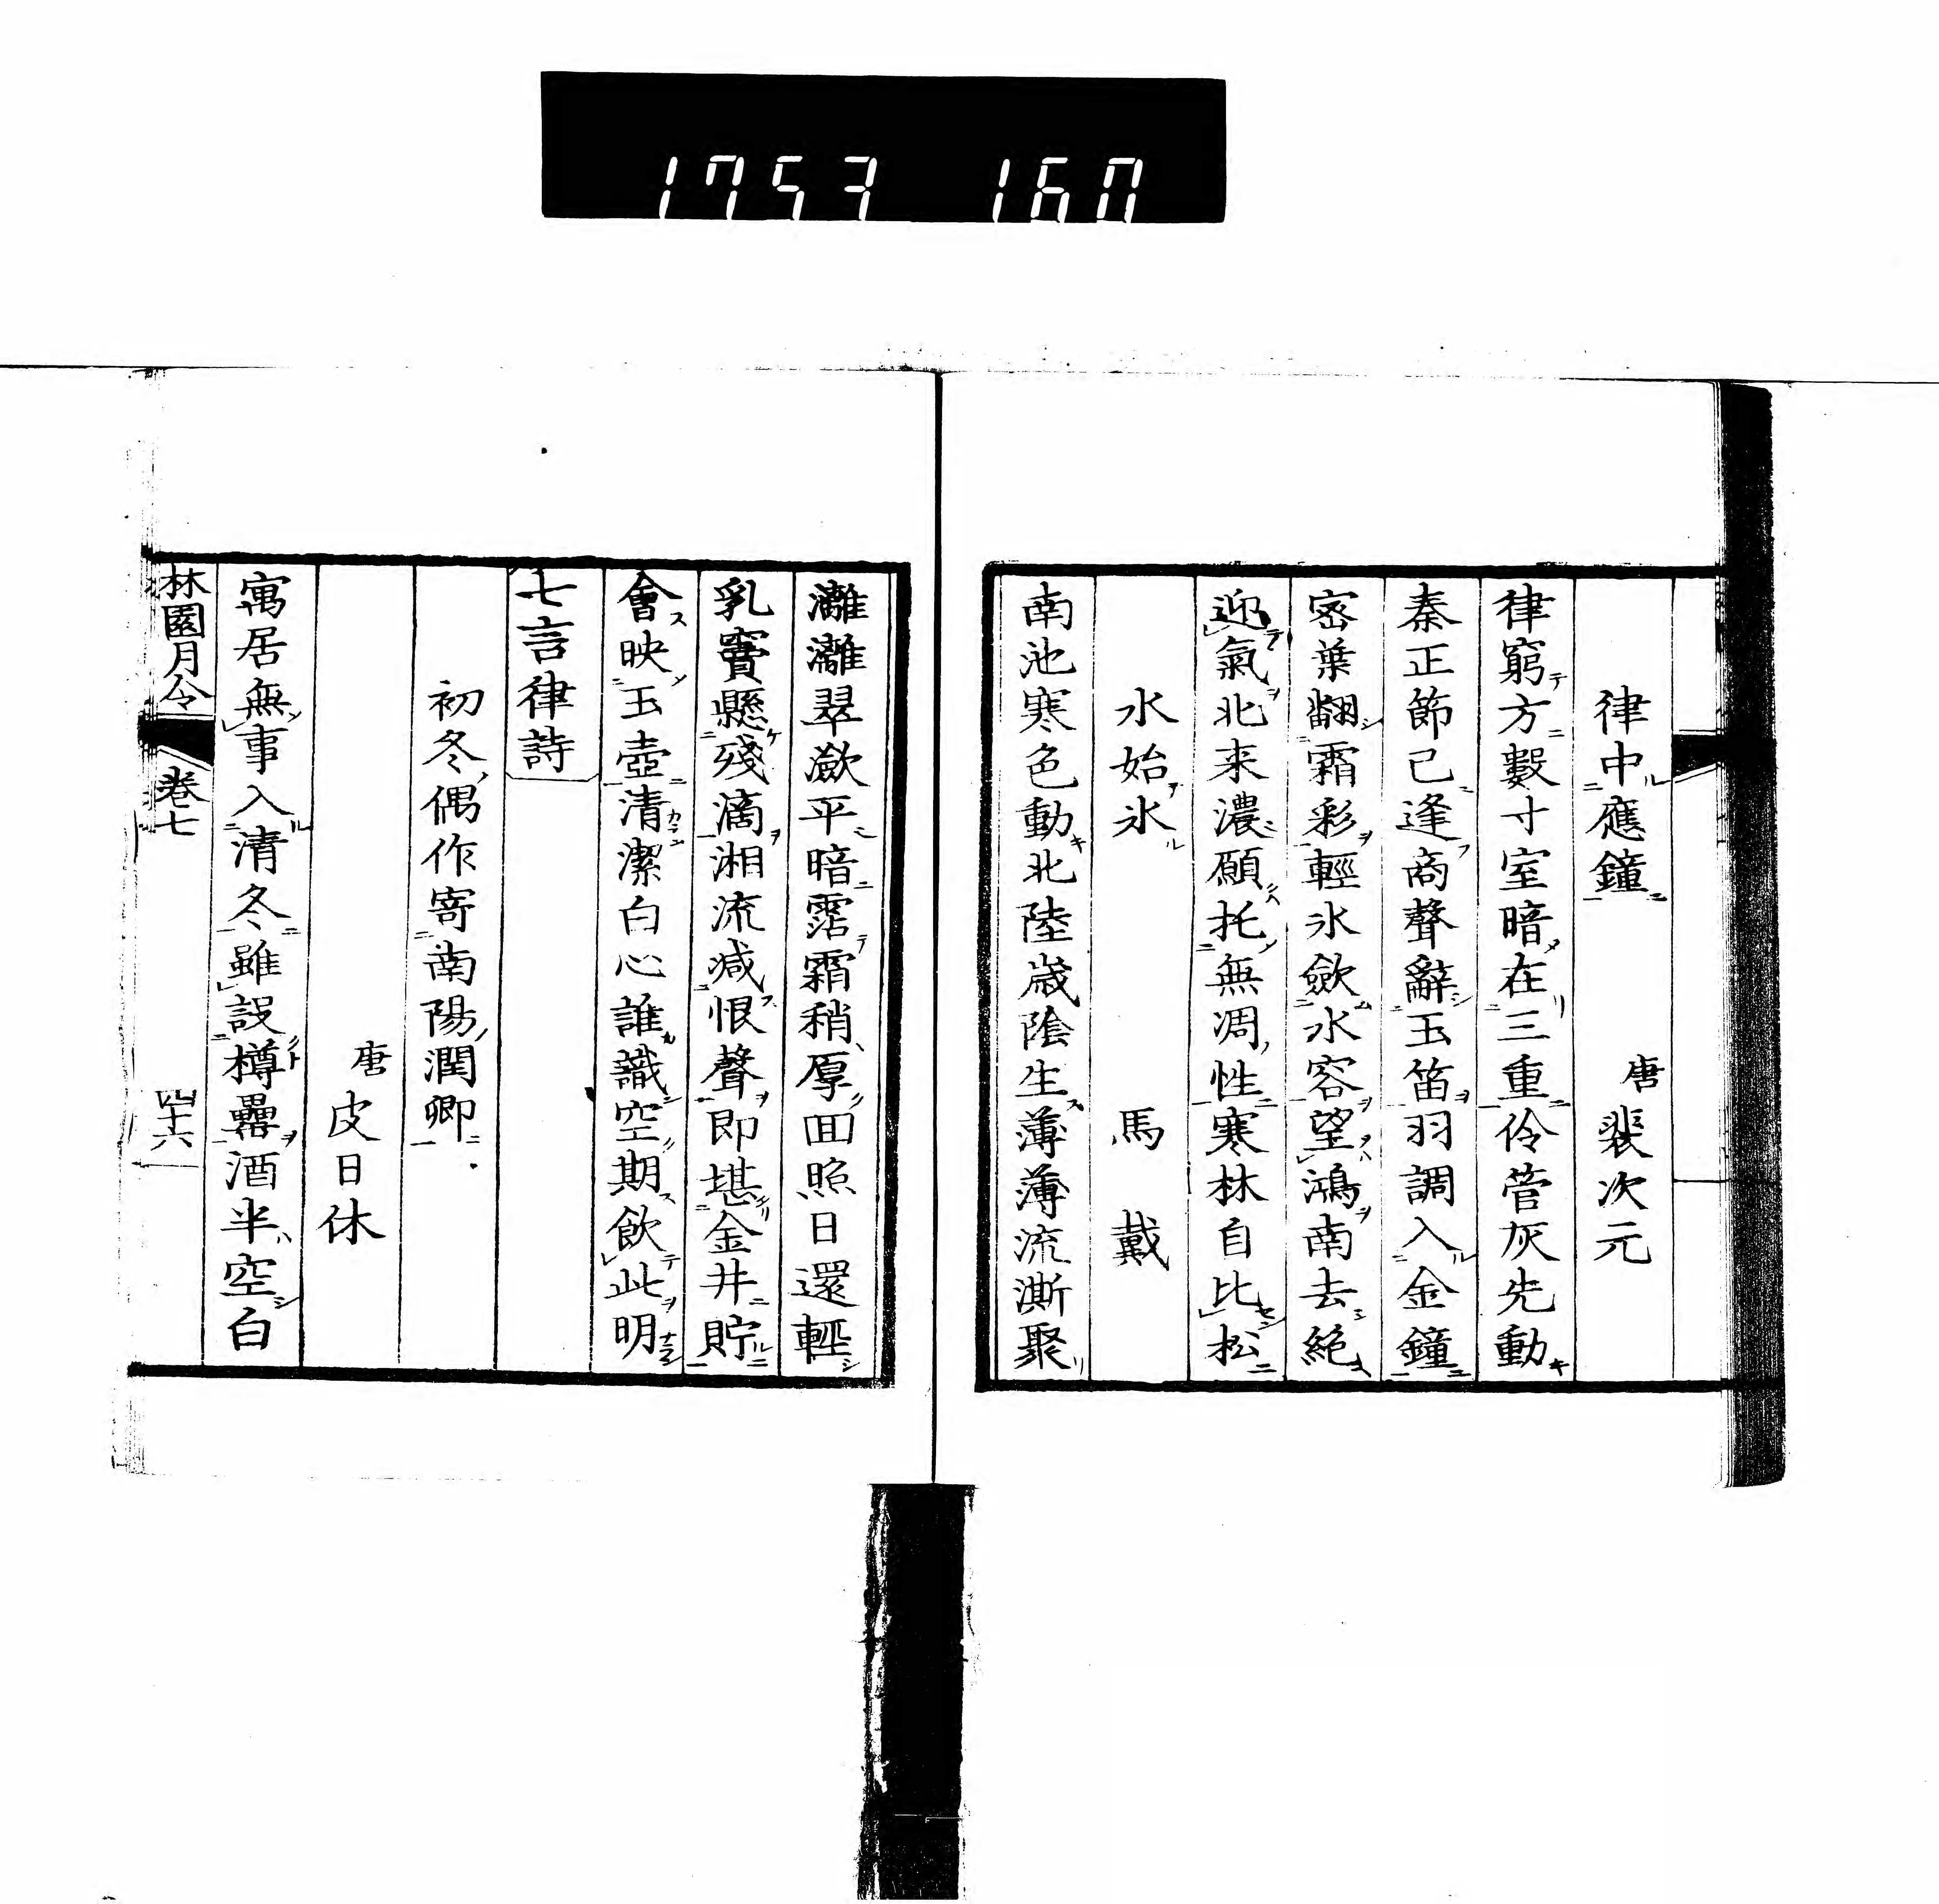 1753 160
律中應鐘 唐 裴次元
律窮方數寸室暗在三重伶管灰先動
秦正節已逢商聲辭玉笛羽調入金鐘
密葉翻霜彩輕氷歛水容望鴻南去絕
迎氣北来濃願托無凋性寒林自比松
水始氷 馬戴
南池寒色動北陸歳陰生薄薄流澌聚
灕灕翠瀲平暗霑霜稍厚回照日還輕
乳竇懸殘滴湘流減恨聲即堪金井貯
會映玉壺清潔白心誰識空期飲此明
七言律詩
初冬偶作寄南陽潤卿
唐 皮日休
寓居無事入清冬雖設樽罍酒半空白
林園月令 卷七 四十六